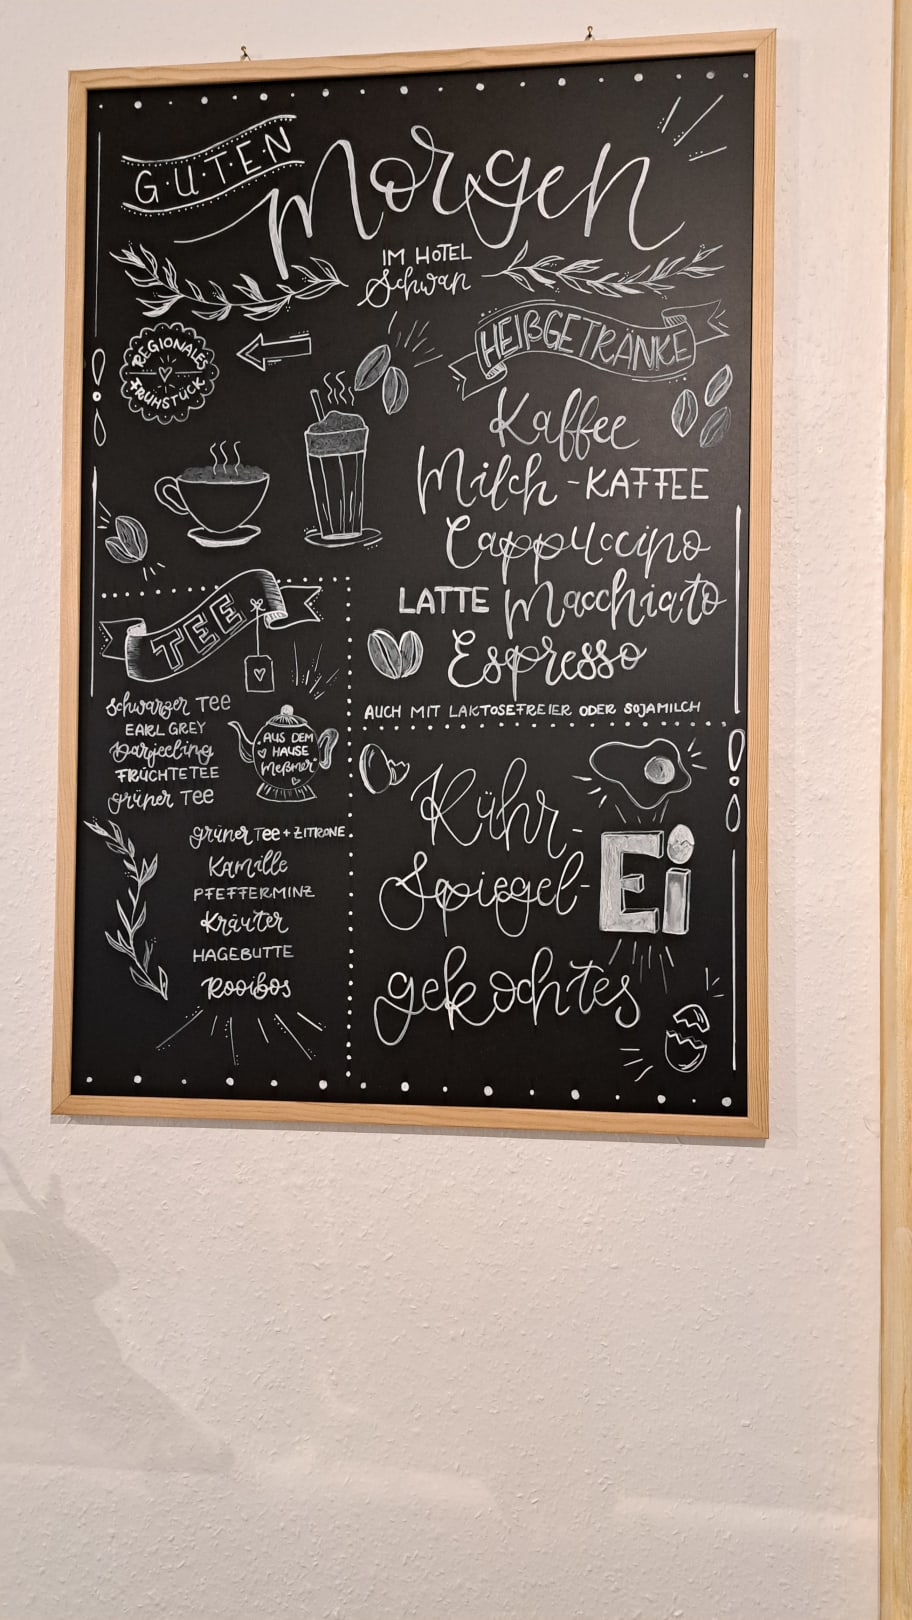 G·U·T·E·N
Morgen
IM HOTEL
Schwan
REGIONALES
FRÜHSTÜCK
HEIßGETRÄNKE
Kaffee
Milch-KAFFEE
Cappuccino
LATTE Macchiato
Espresso
AUCH MIT LAKTOSEFREIER ODER SOJAMILCH
TEE
schwarzer TEE
EARL GREY
Darjeeling
FRÜCHTETEE
grüner TEE
AUS DEM
HAUSE
Meßmer
grüner Tee + ZITRONE
Kamille
PFEFFERMINZ
Kräuter
HAGEBUTTE
Rooibos
Rühr-
Spiegel-
Ei
gekochtes